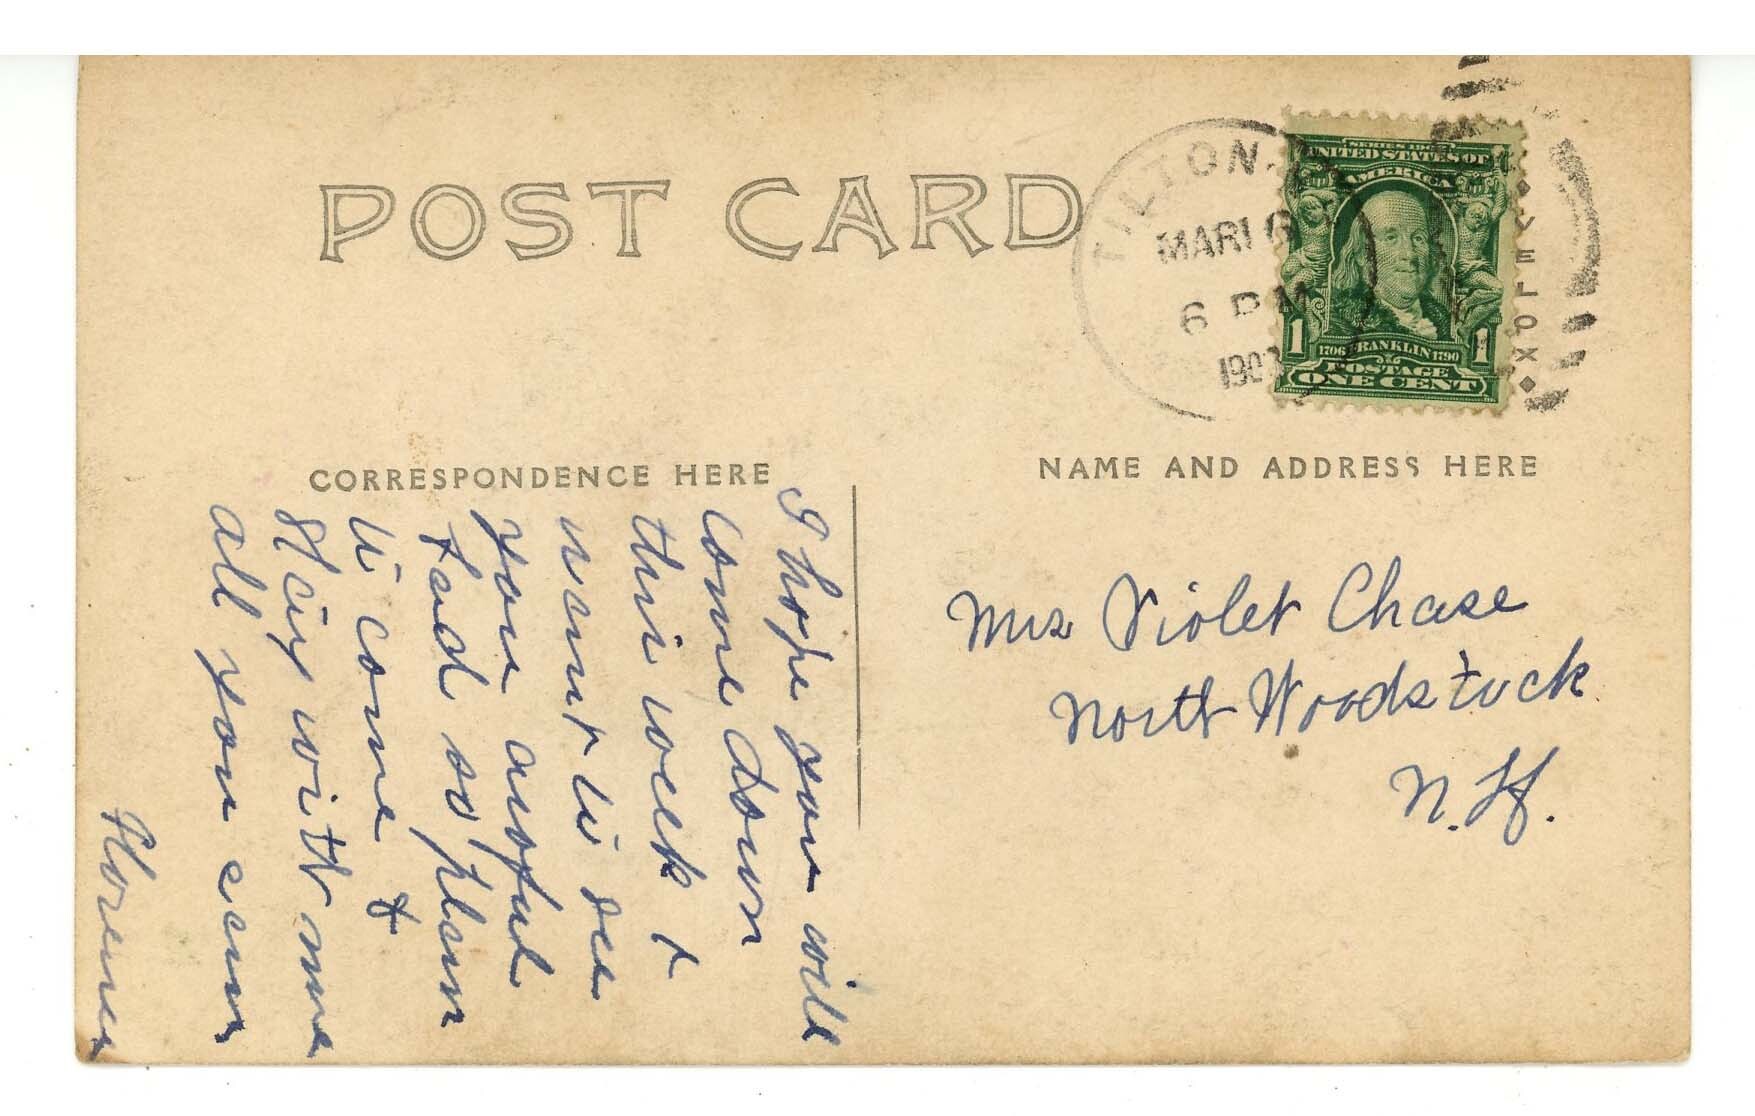 POST CARD
TILTON
MAR 16
6 PM
SERIES 1902
UNITED STATES OF
AMERICA
1706 FRANKLIN 1790
1 1
POSTAGE
ONE CENT
VELOX
CORRESPONDENCE HERE
NAME AND ADDRESS HERE
I hope you will
come down
this week I
want to see
you awful
bad so plan
to come &
stay with me
all you can
Florence
Violet Chase
North Woodstock
N. H.